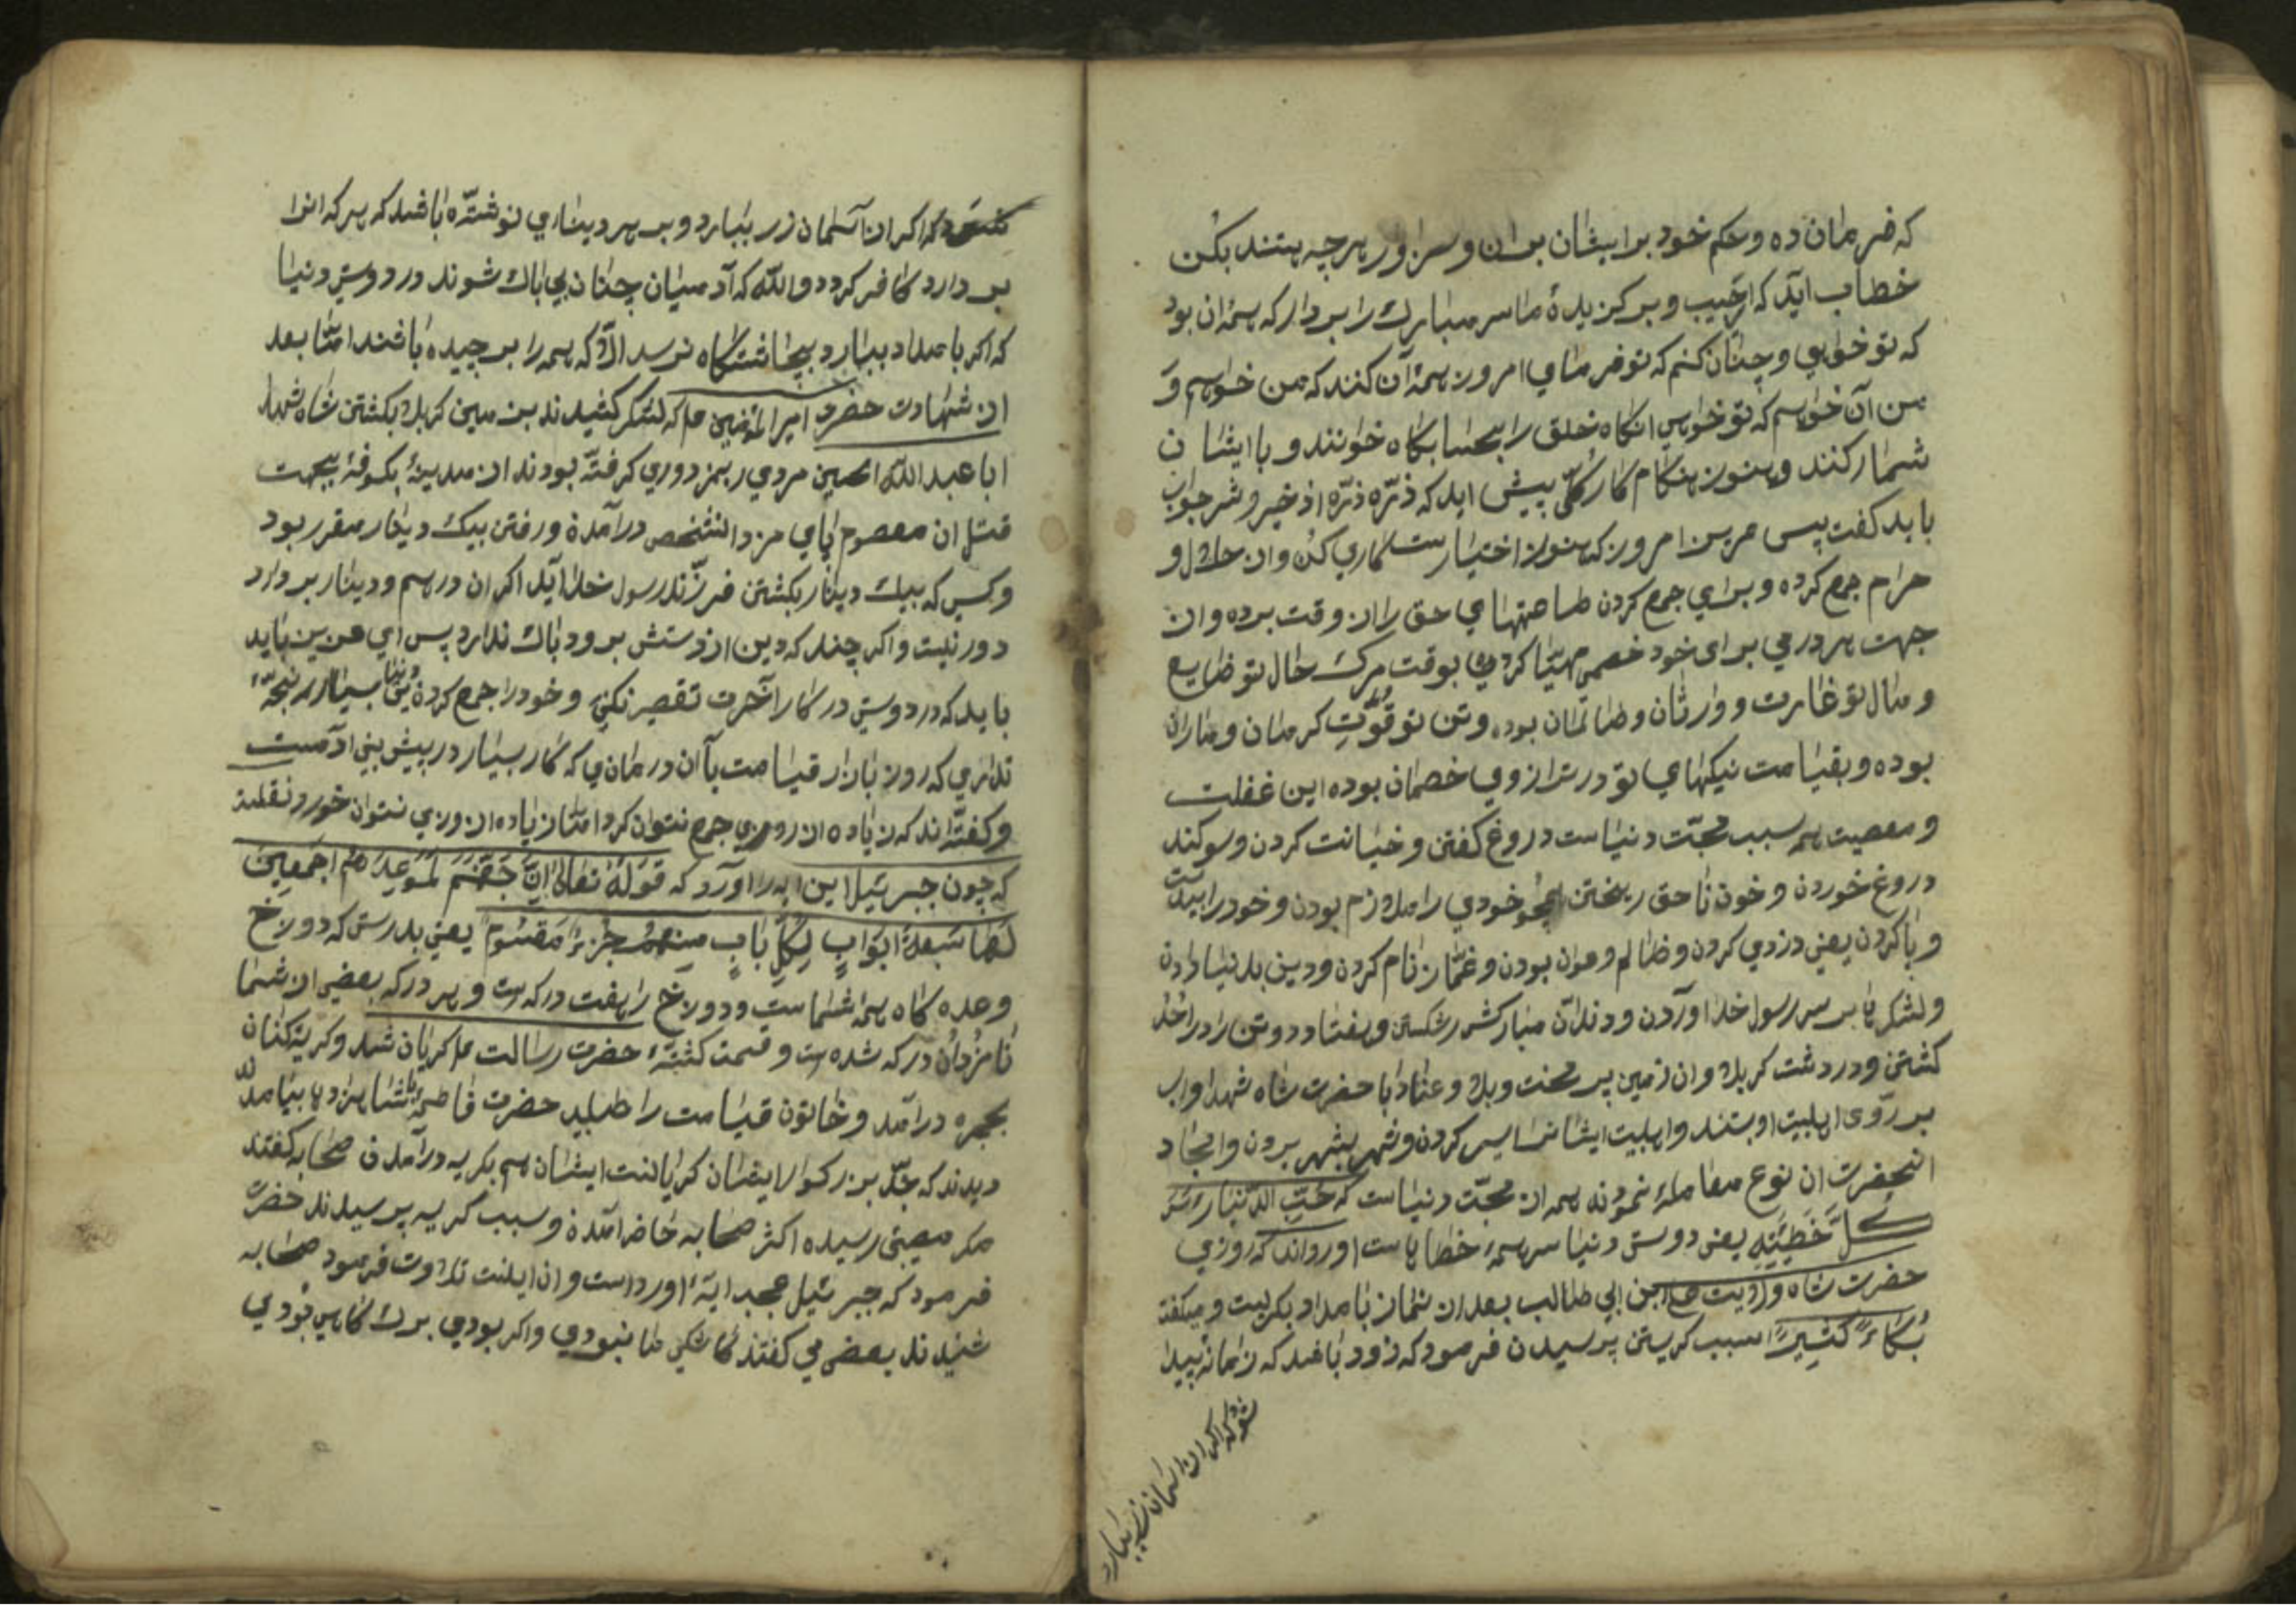 که فرمان ده و حکم خود برایشان بران و سزاور هرچه هستند بکن
خطاب آید که ای حبیب و برکزیدهٔ ما سر مبارک را بردار که همه آن بود
که تو خواهی و چنان کنم که تو فرمایی امروز همهٔ آن کنند که من خواهم و
من آن خواهم که تو خواهی انکاه خلق را بحسابکاه خوانند و با ایشان
شمار کنند و هنوز هنکام کار کلی پیش اید که ذرّه ذرّه از خیر و شر جواب
باید کفت پس عزیز من امروز که هنوز اختیارست کاری کن و از حلال و
حرام جمع کرده و برای جمع کردن طاعتهای حق را از وقت برده و از
جهت هر درمی برای خود خصمی مهیّا کردی بوقت مرک حال تو ضایع
و مال تو غارت و وارثان و ظالمان بوده و تن تو قوّت کرمان و ماران
بوده و بقیامت نیکیهای تو در ترازوی خصمان بوده این غفلت
و معصیت همه سبب محبّت دنیاست دروغ کفتن و خیانت کردن و سوکند
دروغ خوردن و خون ناحق ریختن همچو خودی را ملازم بودن و خود را
و پا کردن یعنی دزدی کردن و ظالم و عوان بودن و غمّاز نام کردن و دین بدنیا دادن
و لشکرها بر سر رسول خدا اوردن و دندان مبارکش شکستن و هفتاد دو تن را در احد
کشتن و در دشت کربلا و ان زمین پر محنت و بلا و عناد با حضرت شاه شهدا و اب
بر روی اهلبیت او بستند و اهلبیت ایشانرا اسیر کردن و شهر بشهر بردن و انجا د
انحضرت ان نوع معاملهٔ نمودند همه از محبّت دنیاست که حُبِّ الدّنیا رأس
کلّ خطیئة یعنی دوستی دنیا سر همهٔ خطاهاست اورده‌اند که روزی
حضرت شاه ولایت علی ابن ابی طالب بعد از نماز بامداد بکریست و میکفت
بُکاءً کثیرًا سبب کریستن پرسیدن فرمود که زود باشد که زمانهٔ پیدا
شود که اکر از اسمان زر ببارد
شود که اکر از آسمان زر ببارد و بر هر دیناری نوشته باشد که هر که انرا
بردارد کافر کردد والله که آدمیان چنان بی باک شوند در دوستی دنیا
که اکر بامداد ببارد بچاشتکاه نرسد الّا که همه را برچیده باشند امّا بعد
از شهادت حضرت امیر المؤمنین ع م که لشکر کشیدند بزمین کربلا بکشتن شاه شهدا
ابا عبد الله الحسین مردی ریمزدوری کرفته بودند از مدینهٔ بکوفهٔ بجهت
قتل ان معصوم پای مزد انشخص در آمده و رفتن بیک دینار مقرر بود
و کسی که بیک دینار بکشتن فرزند رسول خدا آید اکر ان درهم و دینار بردارد
دور نیست و اکر چند که دین از دستش برود باک ندارد پس ای عزیز باید
باید که در دوستی در کار آخرت تقصیر نکنی و خود را جمع کردهٔ بسیار رنجه
نداری که روز بازار قیامت با آن درمانی که کار بسیار در پیش بنی ادمست
و کفته‌اند که زیاده از روزی جمع نتوان کرد امّا زیاده از روزی نتوان خورد نقلست
که چون جبرئیل این ایه را اورد که قوله تعالی اِنَّ جَهَنَّمَ لَمَوعِدُهُم اَجمَعِینَ
لَها سَبعَةُ اَبوابٍ لِکُلِّ بابٍ مِنهُم جُزءٌ مَقسُومٌ یعنی بدرستی که دوزخ
وعده کاه همه شماست و دوزخ را هفت درکه است و هر درکه بعضی از شما
نامزد آن درکه شده است و قسمت کشتهٔ حضرت رسالت ع م کریان شد و کریه کنان
بحجره درآمد و خاتون قیامت را طلبید حضرت فاطمه با شاهزادها بیامدند
دیدند که جدّ بزرکوار ایشان کریانست ایشان هم بکریه درآمدن صحابه کفتند
مکر مصیبتی رسیده اکثر صحابه حاضر امده و سبب کریه پرسیدند حضرت
فرمود که جبرئیل عجب ایهٔ اورداست و ان ایلنت تلاوت فرمود صحابه
شنیدند بعضی می کفتند کاشکی ما نبودی و اکر بودی برک کاهی بودی